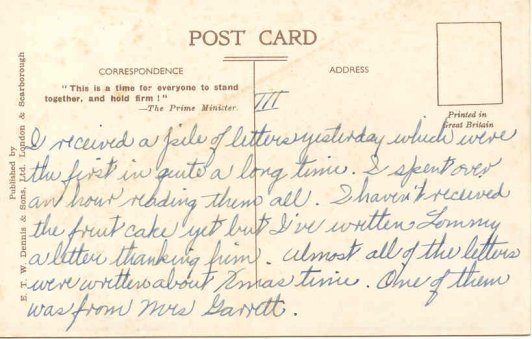 POST CARD
CORRESPONDENCE
ADDRESS
"This is a time for everyone to stand
together, and hold firm!"
—The Prime Minister.
III
Printed in
Great Britain
Published by
E. T. W. Dennis & Sons, Ltd. London & Scarborough
I received a pile of letters yesterday which were
the first in quite a long time. I spent over
an hour reading them all. I haven't received
the fruit cake yet but I've written Tommy
a letter thanking him. Almost all of the letters
were written about Xmas time. One of them
was from Mrs Garrett.